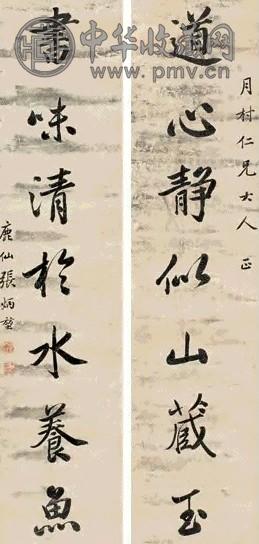 中华收藏网
www.pmv.cn
月村仁兄大人 正
道心静似山藏玉
書味清於水養魚
鹿仙張炳堃